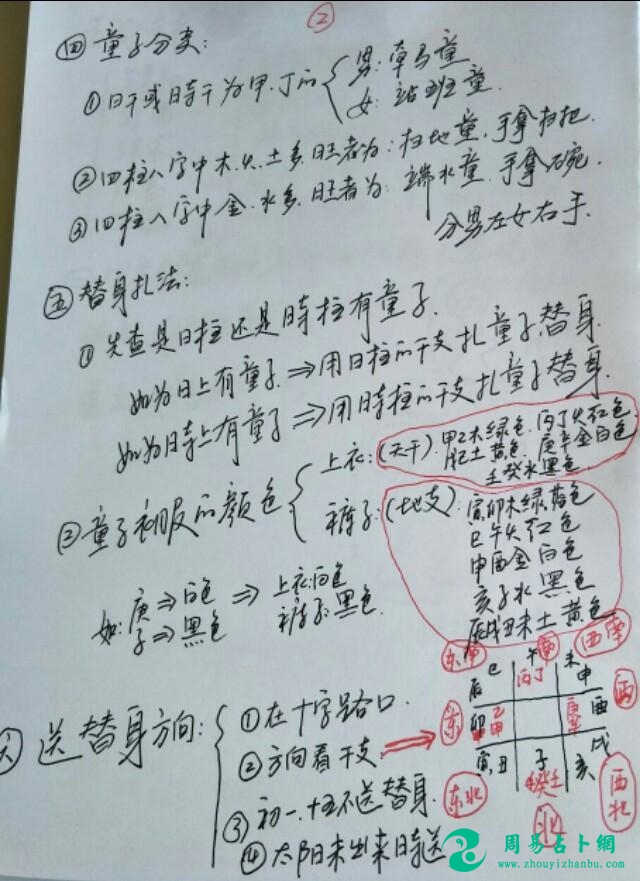 ②
四 童子分类:
①日干或时干为甲.丁的 { 男: 牵马童
女: 站班童.
②四柱八字中木.火.土多.旺者为: 扫地童, 手拿扫把.
③四柱八字中金.水多.旺者为: 端水童. 手拿碗.
分男左女右手.
五 替身扎法:
① 先查是日柱还是时柱有童子.
如为日上有童子.⇒用日柱的干支扎童子替身.
如为时上有童子⇒用时柱的干支扎童子替身.
② 童子衣服的颜色
上衣:(天干). 甲乙木绿色. 丙丁火红色
戊己土黄色. 庚辛金白色
壬癸水黑色.
裤子:(地支): 寅卯木绿色
巳午火红色
申酉金白色
亥子水黑色
辰戌丑未土黄色
如: 庚⇒白色
子⇒黑色
⇒ 上衣:白色
裤子:黑色.
六 送替身方向:
① 在十字路口.
② 方向看干支.
③ 初一.十五不送替身.
④ 太阳未出来时送
东南 南 西南
巳 午 未
辰 丙丁 申
东 卯 乙甲 庚辛 酉 西
寅丑 子 亥 戌
癸壬
东北 北 西北
周易占卜網
www.zhouyizhanbu.com